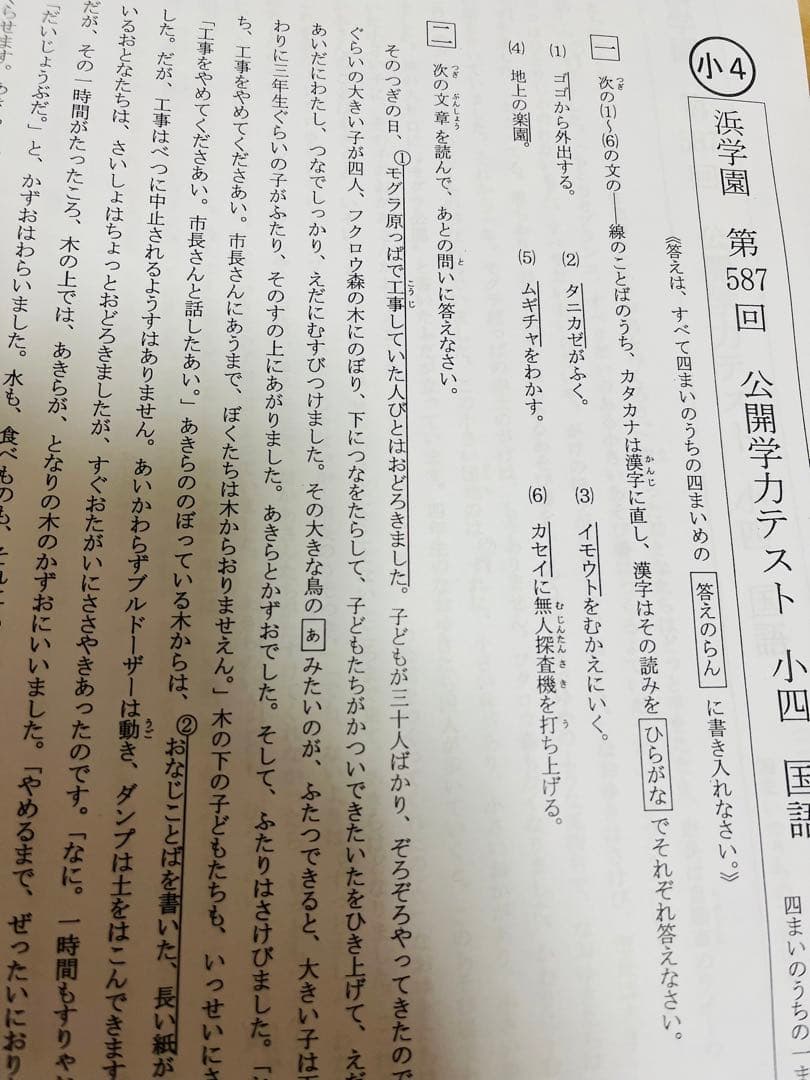 小4
浜学園 第587回 公開学力テスト 小四 国語
四まいのうちの一ま
《答えは、すべて四まいのうちの四まいめの 答えのらん に書き入れなさい。》
一 次の(1)~(6)の文の――線のことばのうち、カタカナは漢字に直し、漢字はその読みを ひらがな でそれぞれ答えなさい。
(1) ゴゴから外出する。
(2) タニカゼがふく。
(3) イモウトをむかえにいく。
(4) 地上の楽園。
(5) ムギチャをわかす。
(6) カセイに無人探査機を打ち上げる。
二 次の文章を読んで、あとの問いに答えなさい。
そのつぎの日、①モグラ原っぱで工事していた人びとはおどろきました。子どもが三十人ばかり、ぞろぞろやってきたので
ぐらいの大きい子が四人、フクロウ森の木にのぼり、下につなをたらして、子どもたちがかついできたいたをひき上げて、えだ
あいだにわたし、つなでしっかり、えだにむすびつけました。その大きな鳥の あ みたいのが、ふたつできると、大きい子は
わりに三年生ぐらいの子がふたり、そのすの上にあがりました。あきらとかずおでした。そして、ふたりはさけびました。「
ち、工事をやめてくださあい。市長さんにあうまで、ぼくたちは木からおりませえん。」木の下の子どもたちも、いっせいにさ
「工事をやめてくださあい。市長さんと話したあい。」あきらののぼっている木からは、②おなじことばを書いた、長い紙が
した。だが、工事はべつに中止されるようすはありません。あいかわらずブルドーザーは動き、ダンプは土をはこんできます
いるおとなたちは、さいしょはちょっとおどろきましたが、すぐおたがいにささやきあったのです。「なに。一時間もすりゃ
だが、その一時間がたったころ、木の上では、あきらが、となりの木のかずおにいいました。「やめるまで、ぜったいにおり
「だいじょうぶだ。」と、かずおはわらいました。水も、食べものも、
らせます。